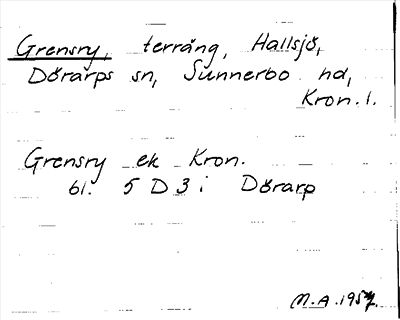 Grensry, terräng, Hallsjö,
Dörarps sn, Sunnerbo hd,
Kron. l.
Grensry ek Kron.
bl. 5 D 3 i Dörarp
M.A. 1957.